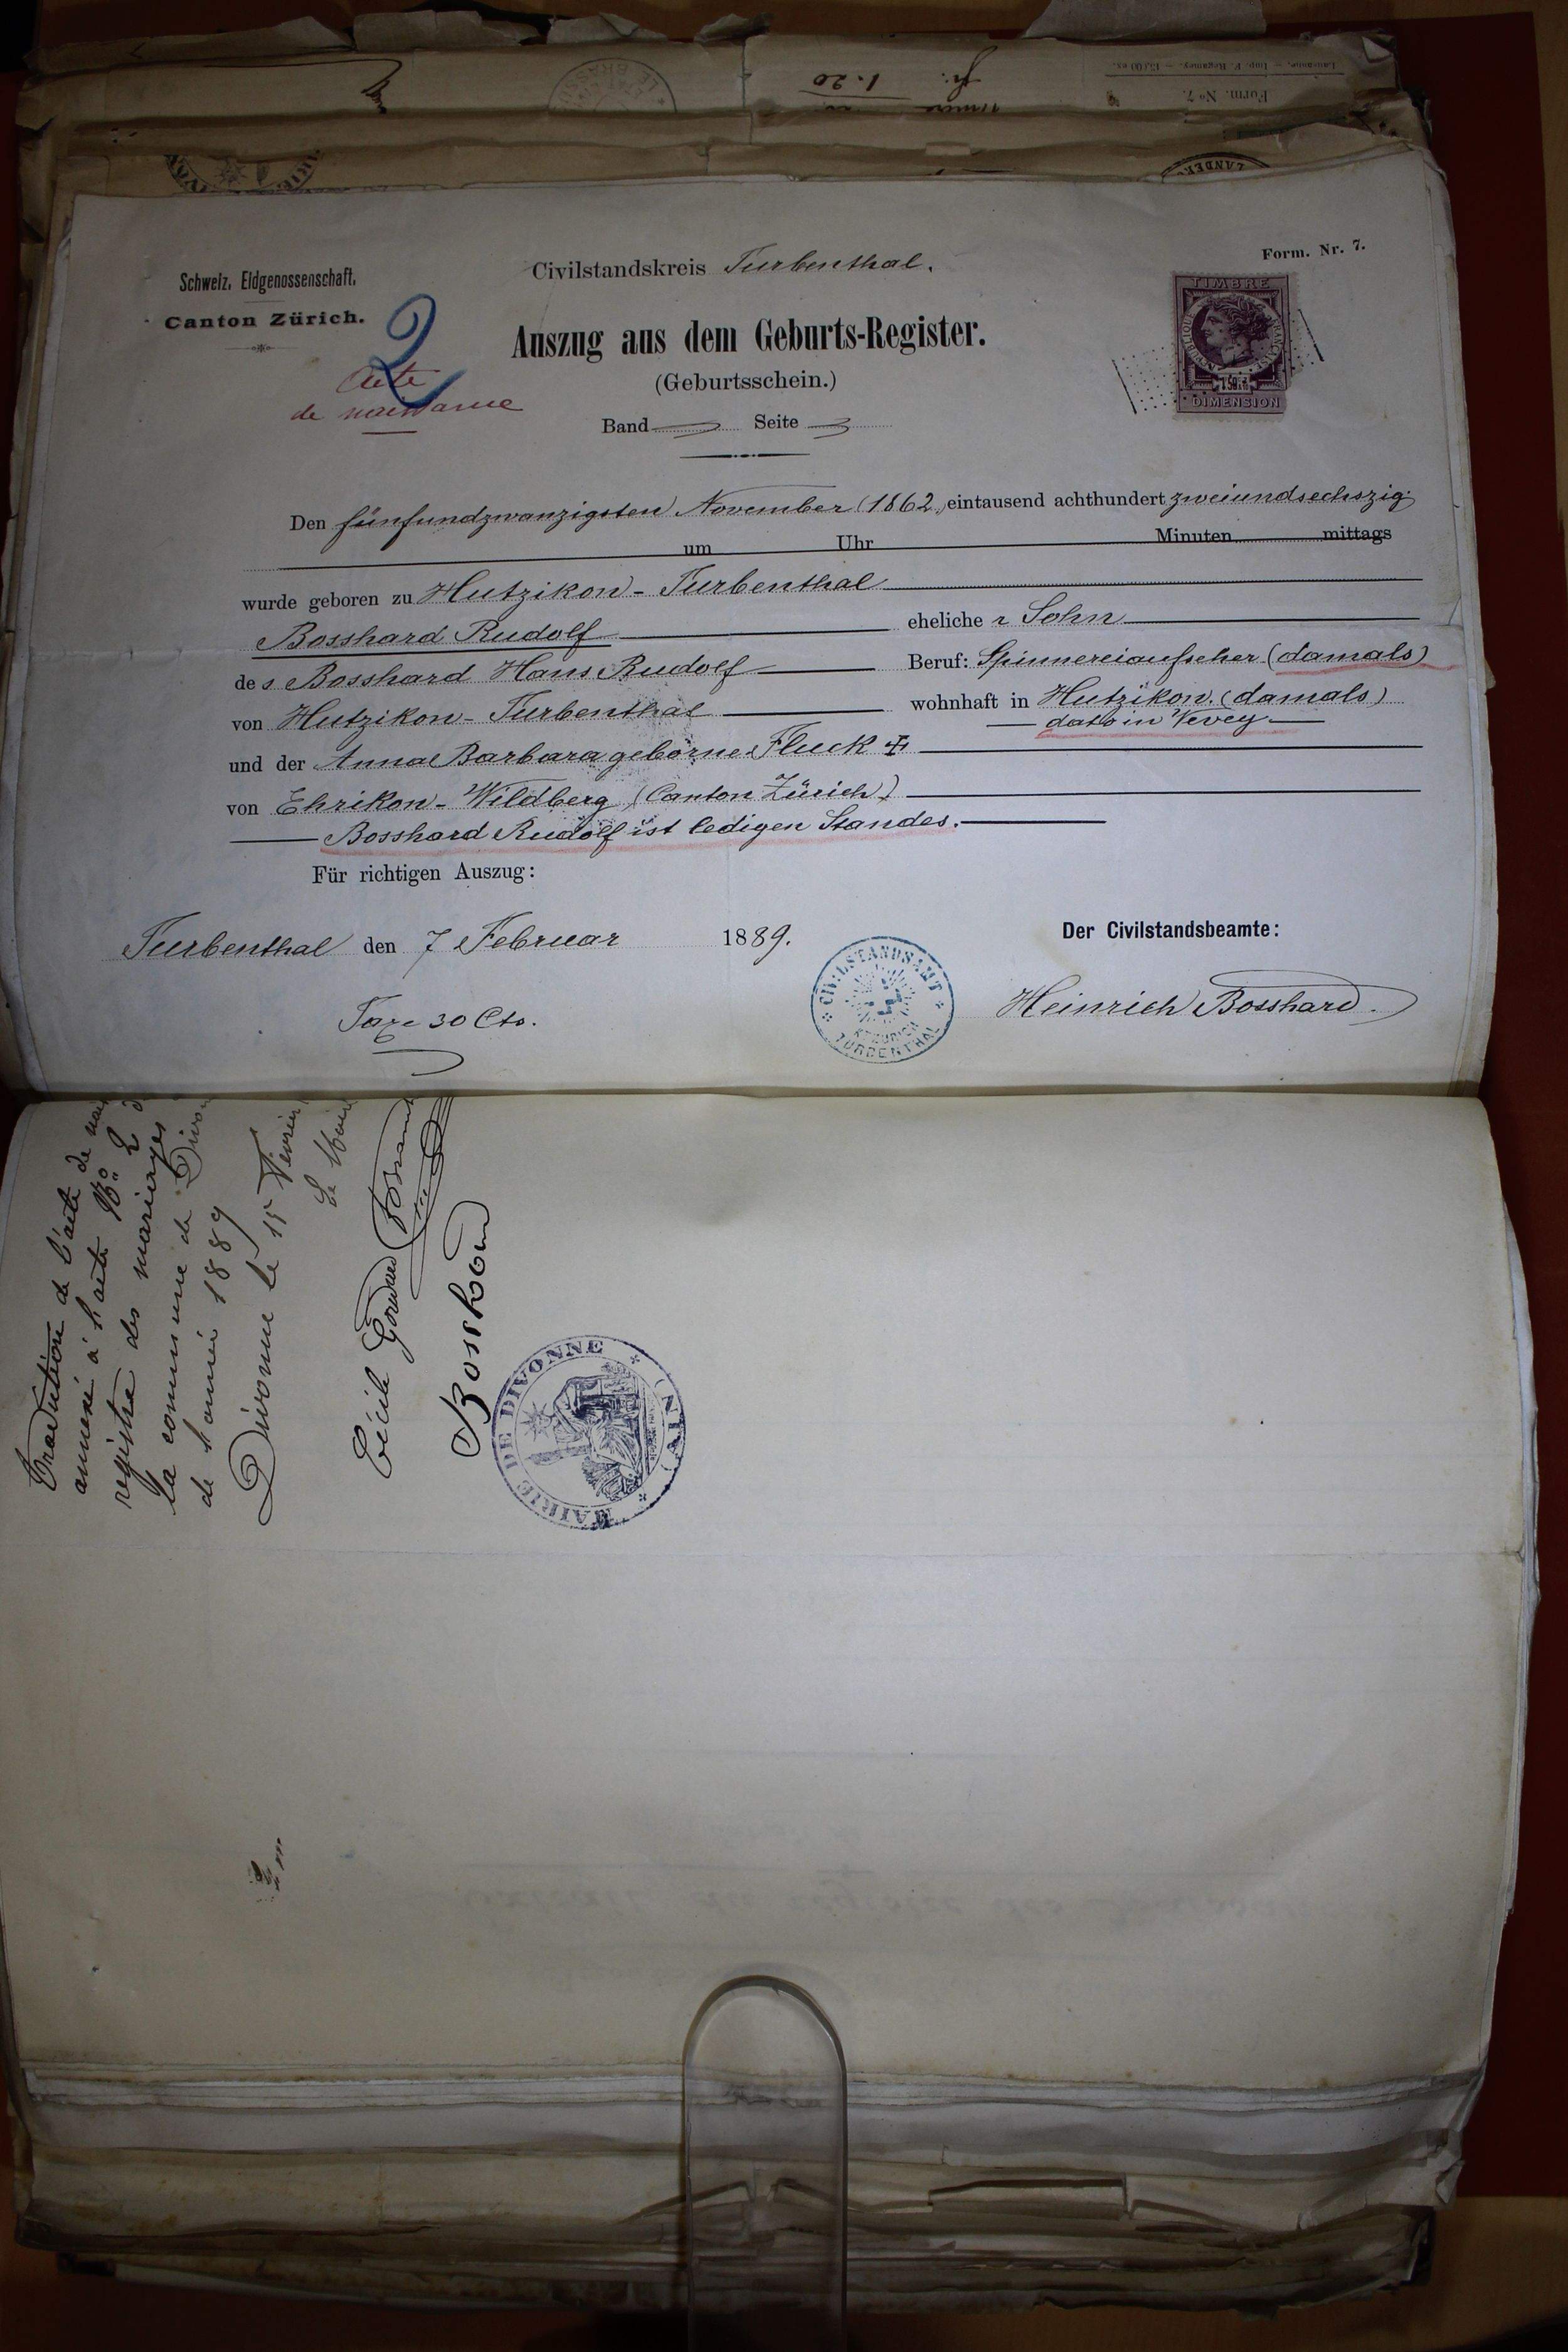 Lausanne. — Imp. F. Regamey. — 15,000 ex.
Form. No 7.
fr. 1.20
LANDER
Schweiz. Eidgenossenschaft.
Canton Zürich.
2
Acte
de naissance
Civilstandskreis Turbenthal.
Form. Nr. 7.
TIMBRE
RÉPUBLIQUE FRANÇAISE
DIMENSION
Auszug aus dem Geburts-Register.
(Geburtsschein.)
Band Seite
Den fünfundzwanzigsten November (1862, eintausend achthundert zweiundsechszig
um Uhr Minuten mittags
wurde geboren zu Hutzikon - Turbenthal
Bosshard Rudolf ehelicher Sohn
des Bosshard Hans Rudolf Beruf: Spinnereiaufseher (damals)
von Hutzikon - Turbenthal wohnhaft in Hutzikon. (damals)
dato in Vevey
und der Anna Barbara geborne Fluck ✝
von Ehrikon - Wildberg (Canton Zürich)
Bosshard Rudolf ist ledigen Standes.
Für richtigen Auszug:
Turbenthal den 7 Februar 1889.
Der Civilstandsbeamte:
Heinrich Bosshard.
Taxe 30 Cts.
CIVILSTANDSAMT
KT. ZÜRICH
TURBENTHAL
Traduction de l'acte de nai
annexé à l'acte No 2 d
registre des mariages
la commune de Divon
de l'année 1889
Divonne le 15 Février
Le Maire
Cécile
Bosshard
MAIRIE DE DIVONNE
(AIN)